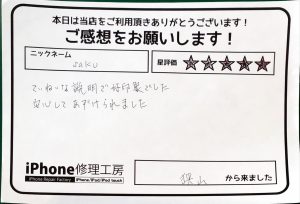 本日は当店をご利用頂きありがとうございます!
ご感想をお願いします!
ニックネーム
saku
星評価 ★★★★★
ていねいな説明で好印象でした
安心してあずけられました
iPhone修理工房
iPhone Repair Factory
iPhone/iPad/iPod touch
狭山
から来ました